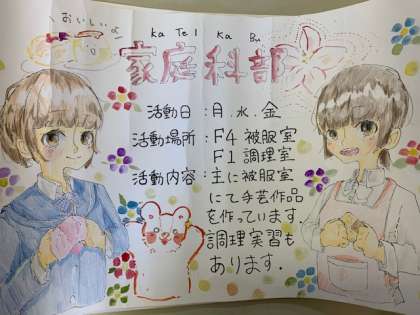 おいしいよ
ka Tei ka Bu
家庭科部
活動日：月.水.金
活動場所：F4 被服室
F1 調理室
活動内容：主に被服室
にて手芸作品
を作っています.
調理実習も
あります.